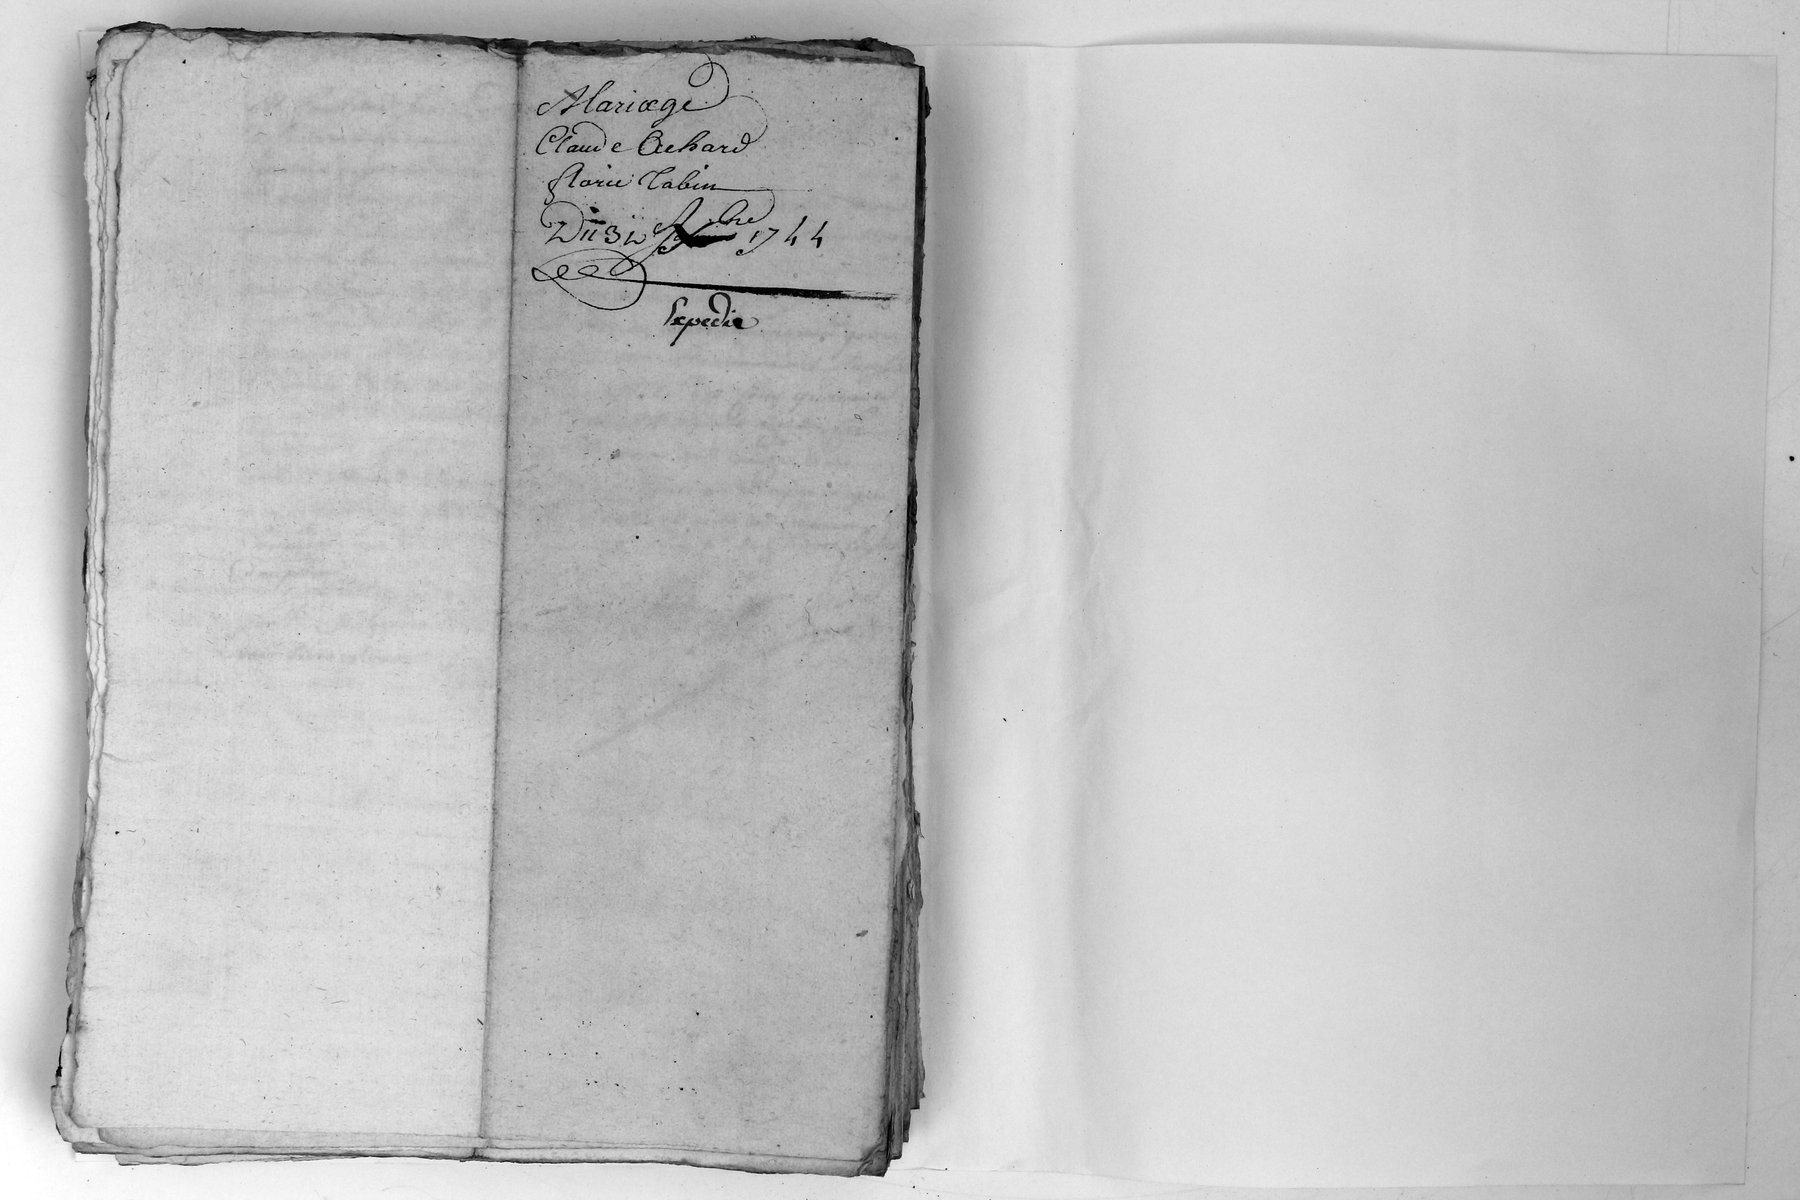 Mariage
Claude Achard
florie Tabin
Du 31 bre 1744
Expedie